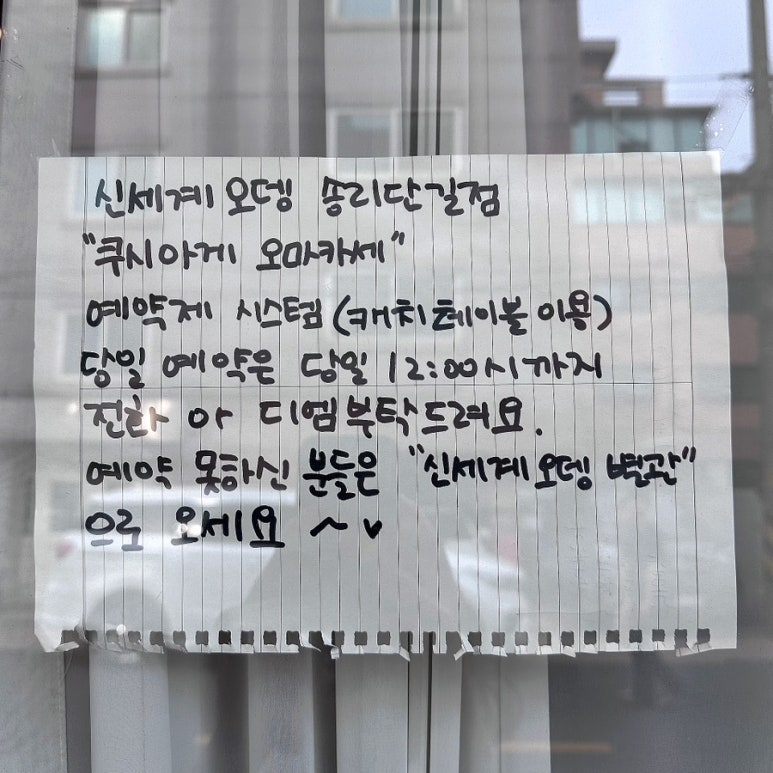 신세계오뎅 송리단길점
"쿠시아게 오마카세"
예약제 시스템(캐치테이블이용)
당일 예약은 당일 12:00시까지
전화 아 디엠부탁드려요.
예약 못하신 분들은 "신세계오뎅 별관"
으로 오세요 ^v